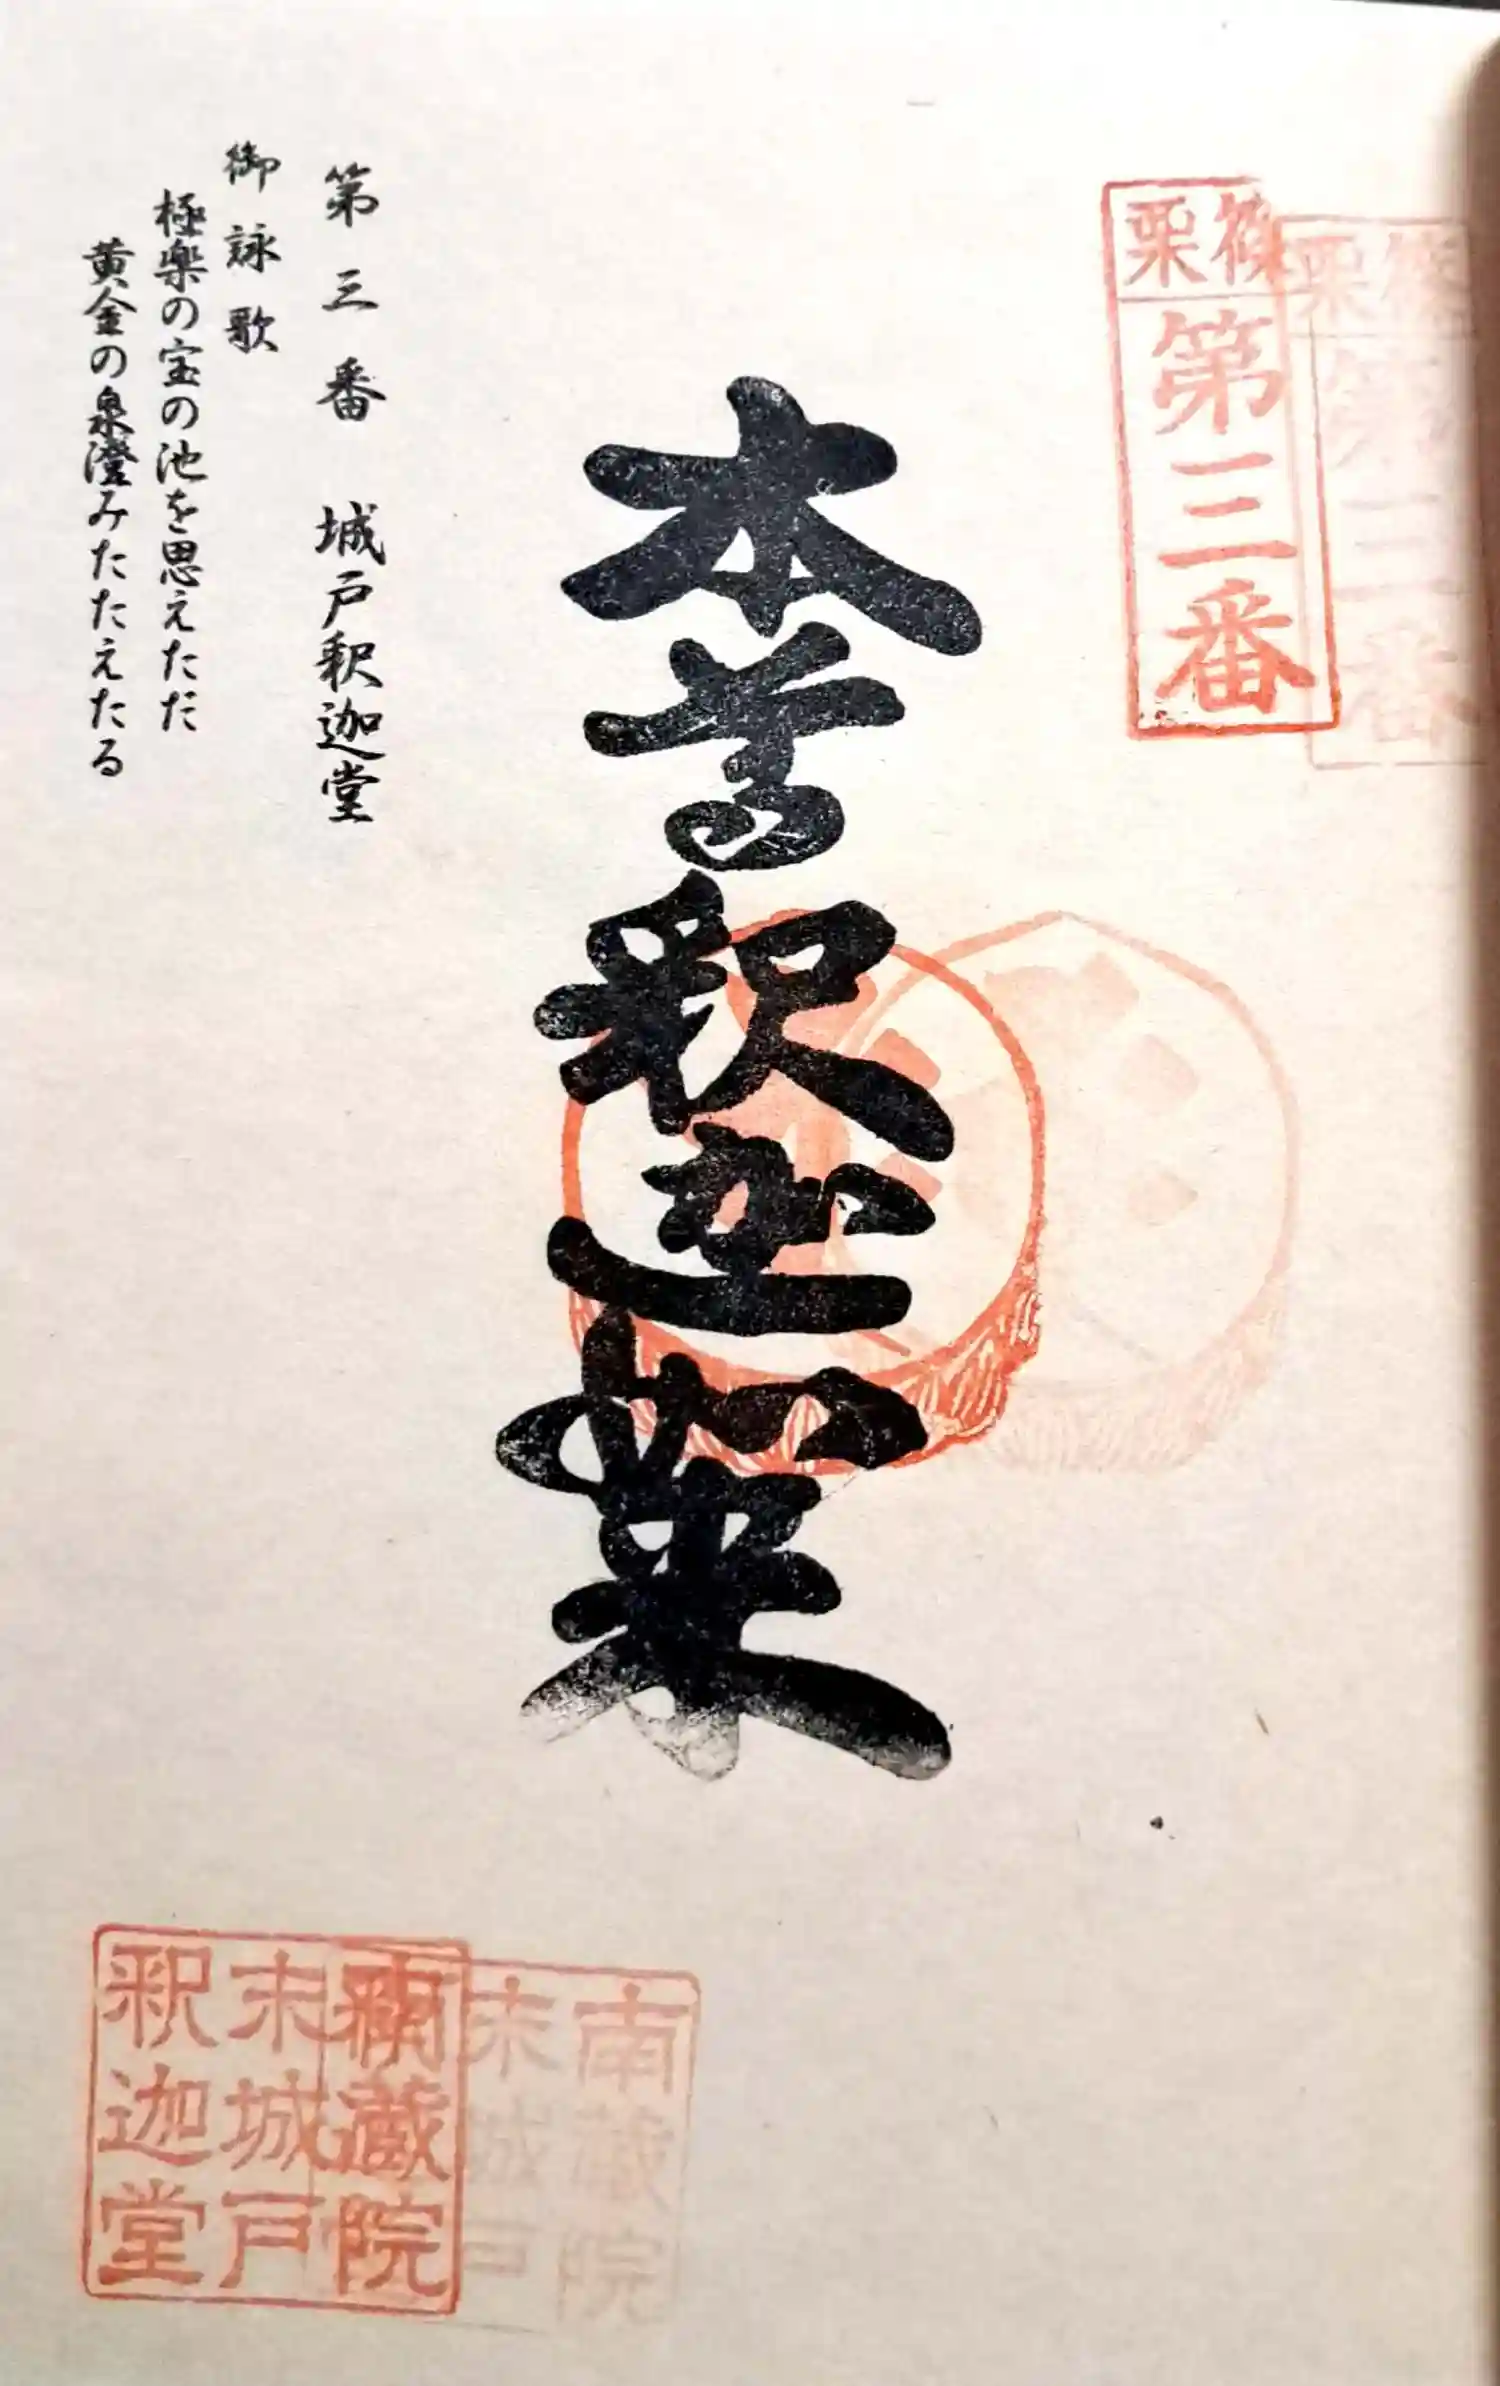 篠栗
第三番
本尊釈迦如来
第三番 城戸釈迦堂
御詠歌
極楽の宝の池を思えただ
黄金の泉澄みたたえたる
南蔵院
末城戸
釈迦堂